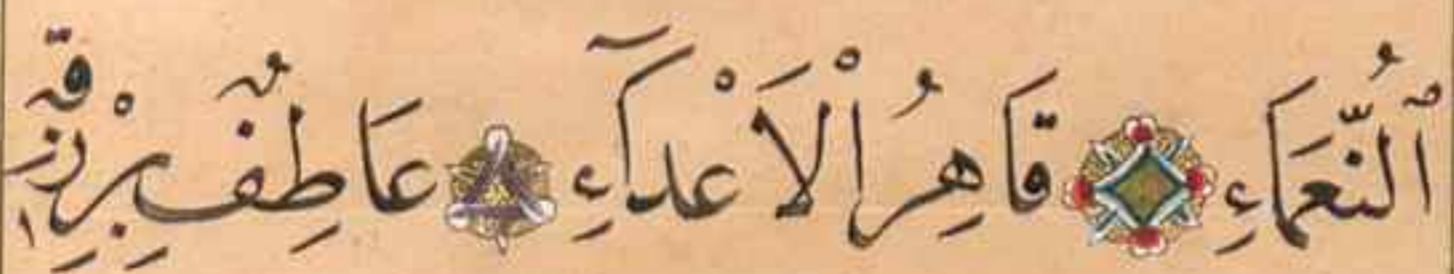 ٱلنَّعْمَاءِ قَاهِرُ الْاَعْدَآءِ عَاطِفٌ بِرِزْقِهِ